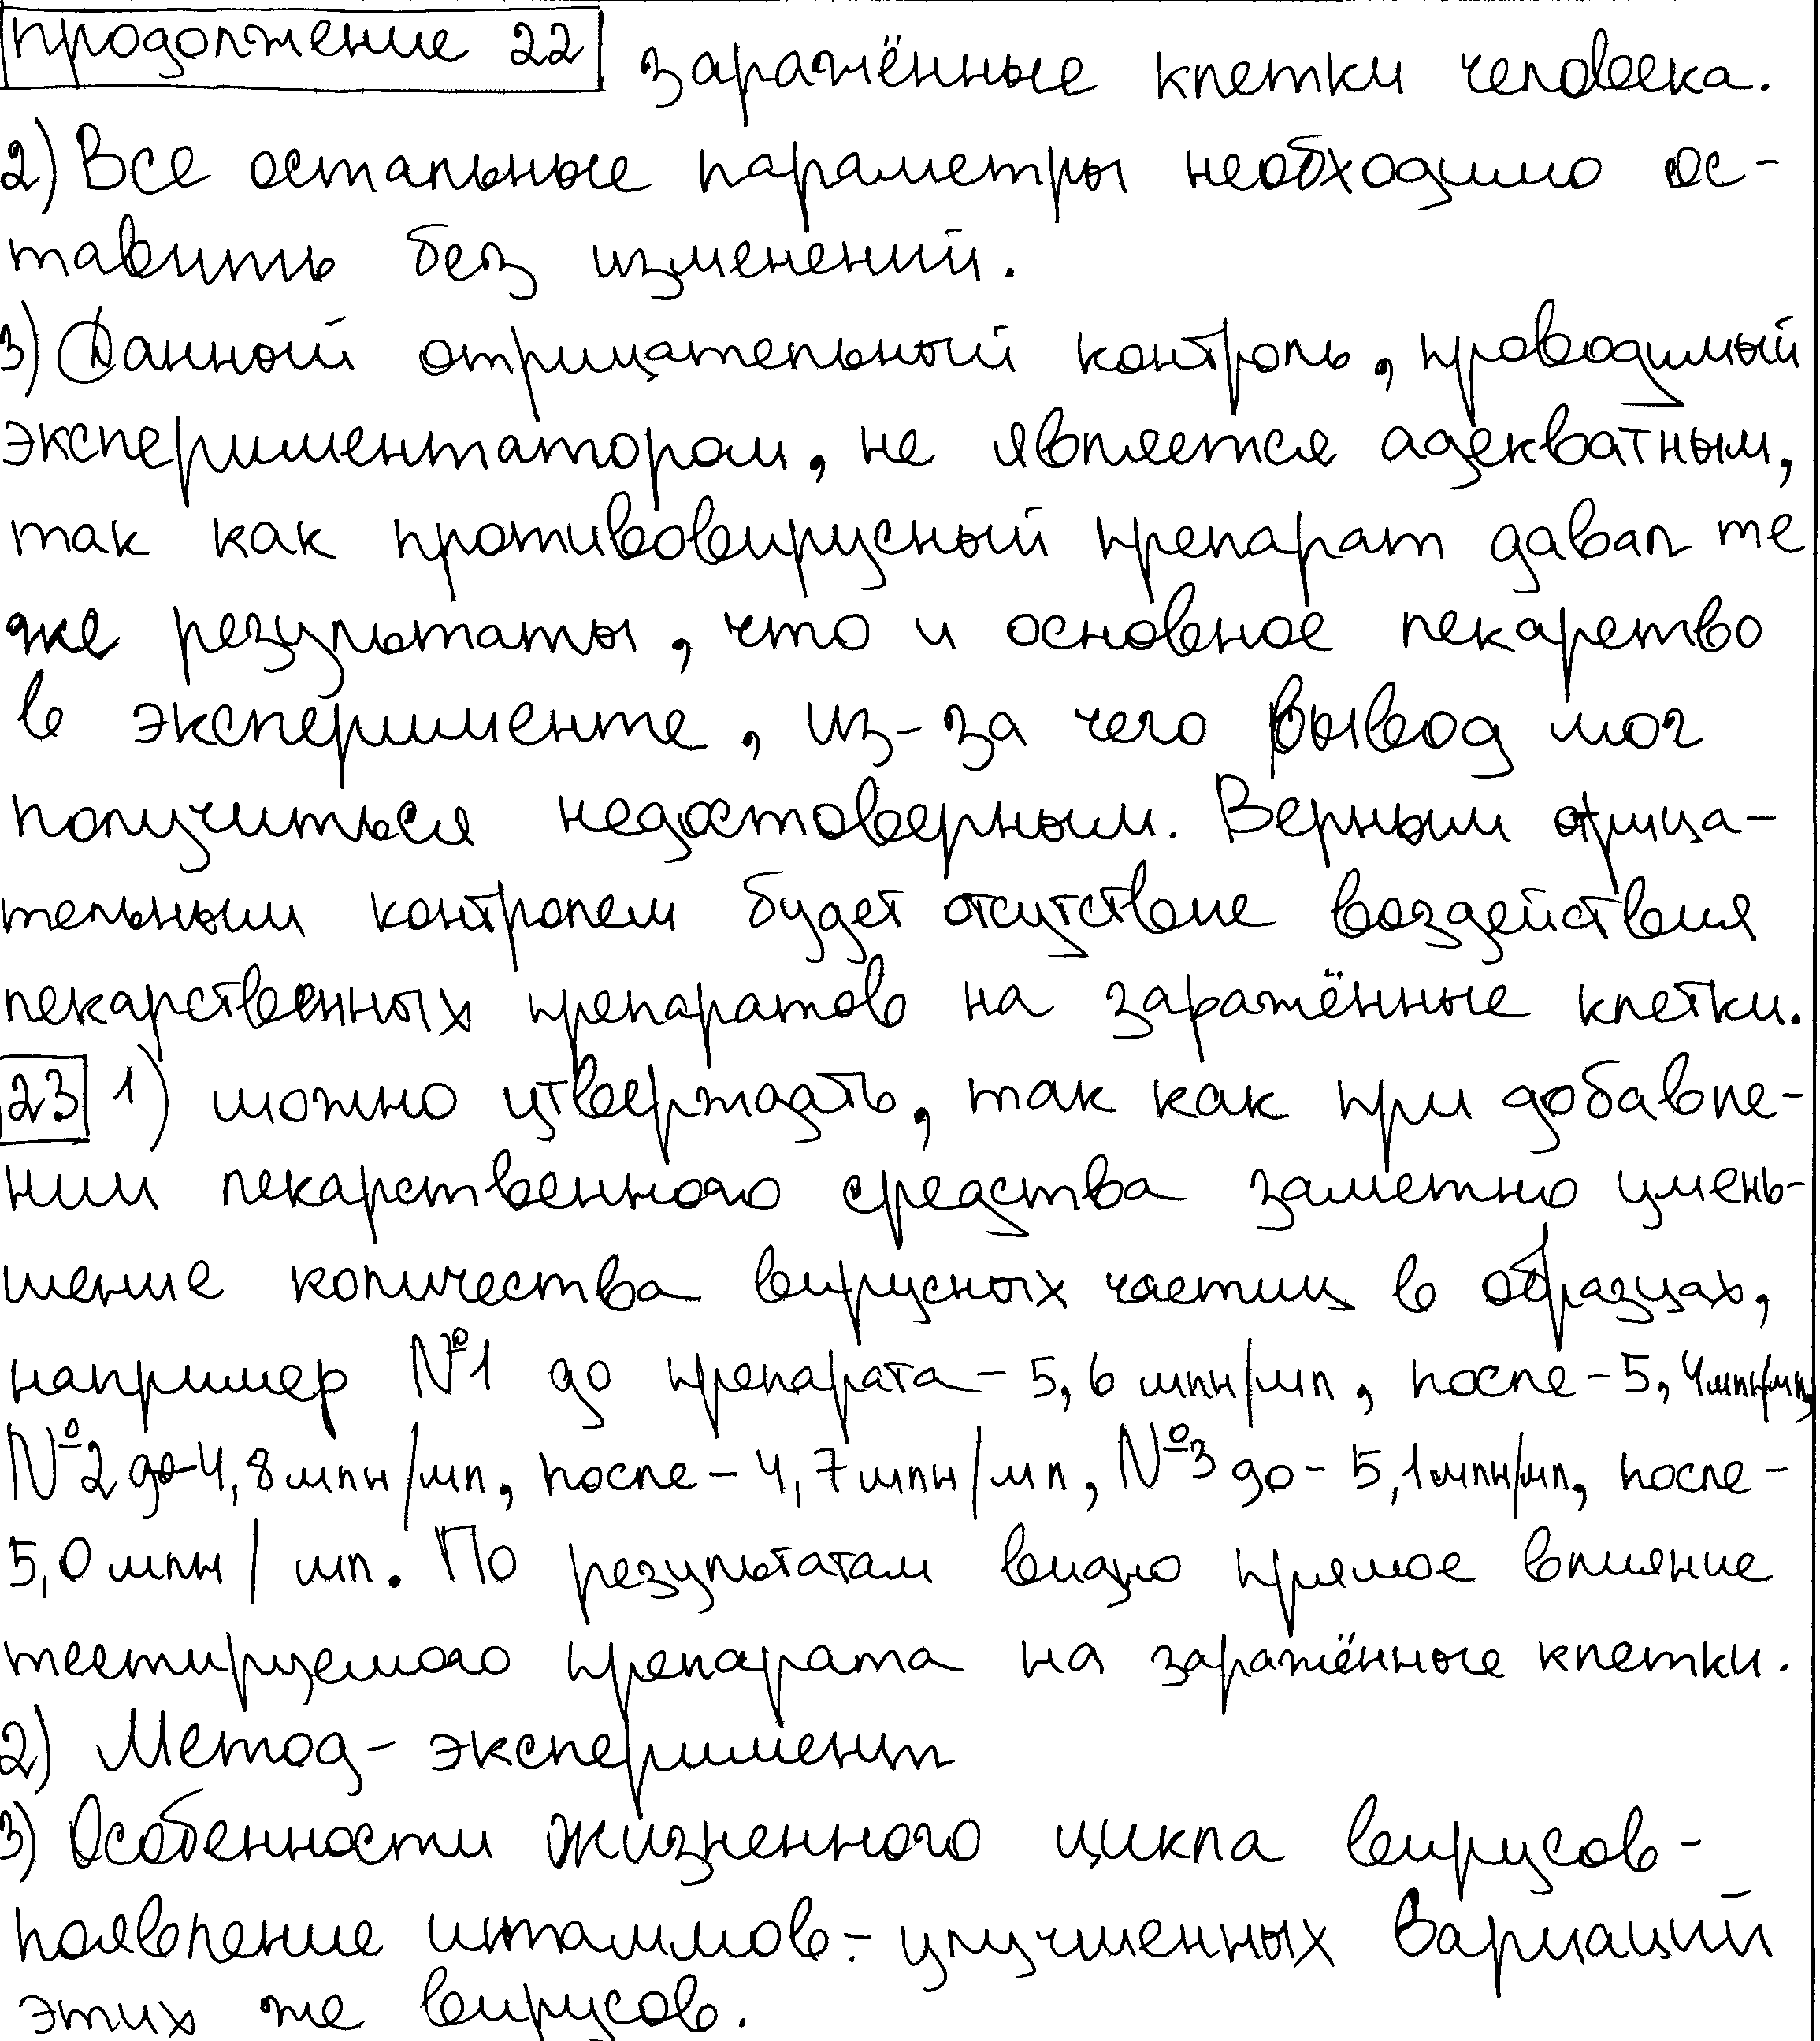 продолжение 22 заражённые клетки человека.
2) Все остальные параметры необходимо ос-
тавить без изменений.
3) Данный отрицательный контроль, проводимый
экспериментатором, не является адекватным,
так как противовирусный препарат давал те
же результаты, что и основное лекарство
в эксперименте, из-за чего вывод мог
получиться недостоверным. Верным отрица-
тельным контролем будет отсутствие воздействия
лекарственных препаратов на заражённые клетки.
23 1) можно утверждать, так как при добавле-
нии лекарственного средства заметно умень-
шение количества вирусных частиц в образцах,
например №1 до препарата - 5,6 млн/мл, после - 5,4млн/мл,
№2 до-4,8млн/мл, после - 4,7млн/мл, №3 до - 5,1млн/мл, после -
5,0млн / мл. По результатам видно прямое влияние
тестируемого препарата на заражённые клетки.
2) Метод - эксперимент
3) Особенности жизненного цикла вирусов -
появление штаммов - улучшенных вариаций
этих же вирусов.